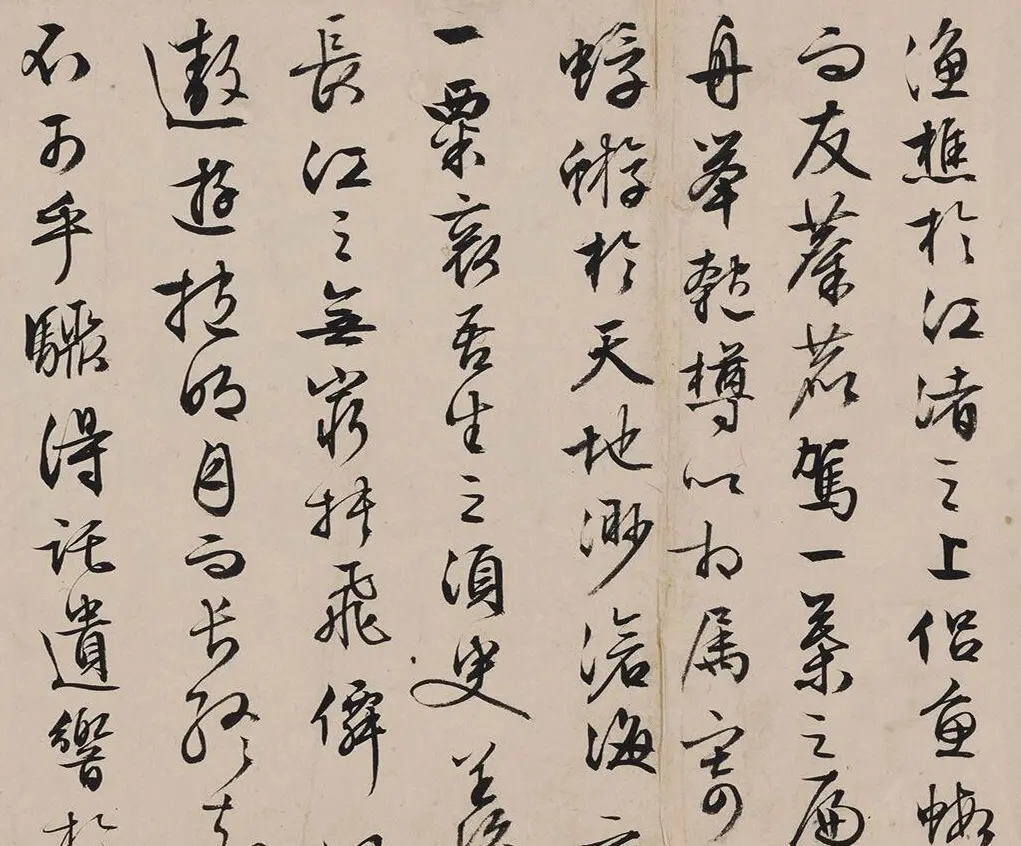 漁樵於江渚之上侶魚蝦
而友麋鹿駕一葉之扁
舟舉匏樽以相属寄
蜉蝣於天地渺滄海之
一粟哀吾生之須臾羨
長江之無窮挾飛僊
遨遊抱明月而長終知
不可乎驟得託遺響於